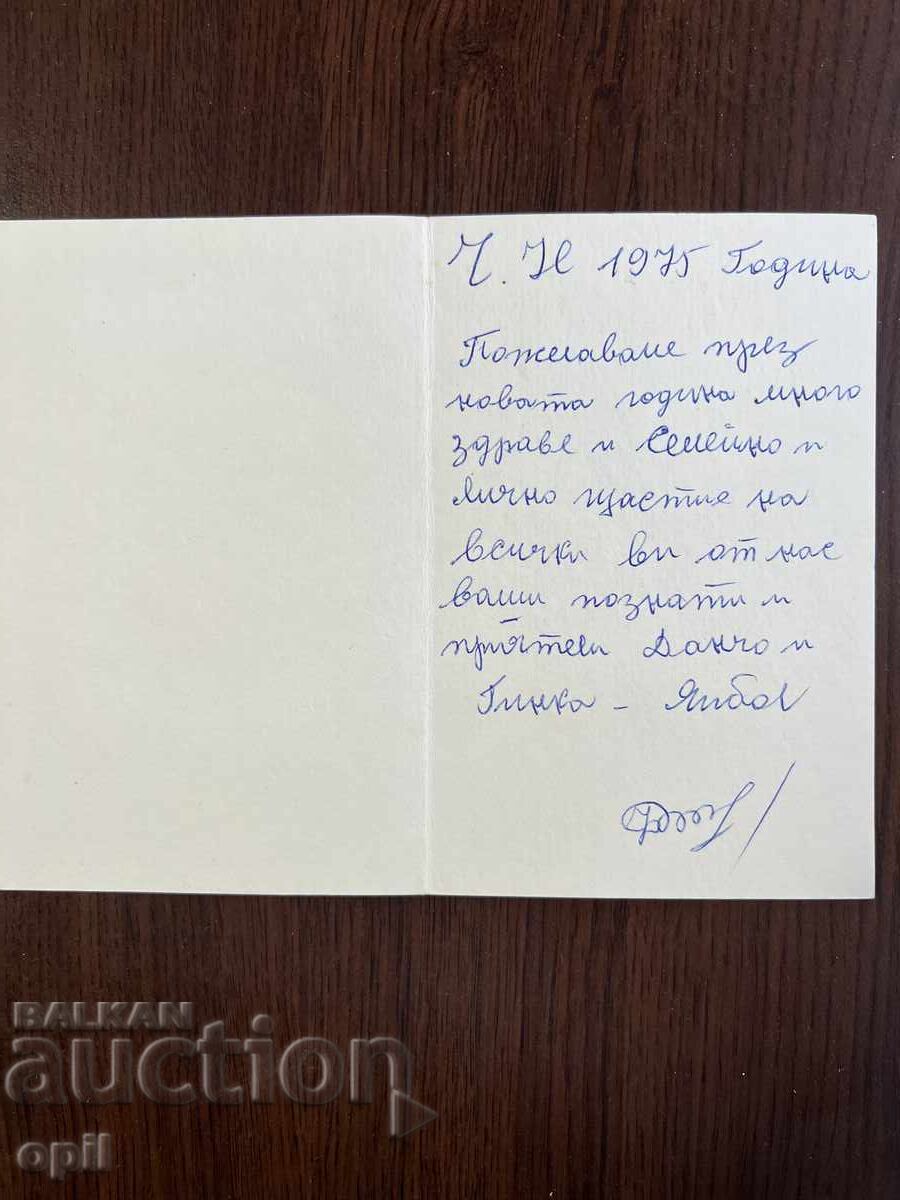 Ч. Н 1975 Година
Пожелаваме през
новата година много
здраве и Семейно и
Лично щастие на
всички ви от нас
ваши познати и
приятели Данчо и
Гинка - Ямбол
BALKAN
auction
opil